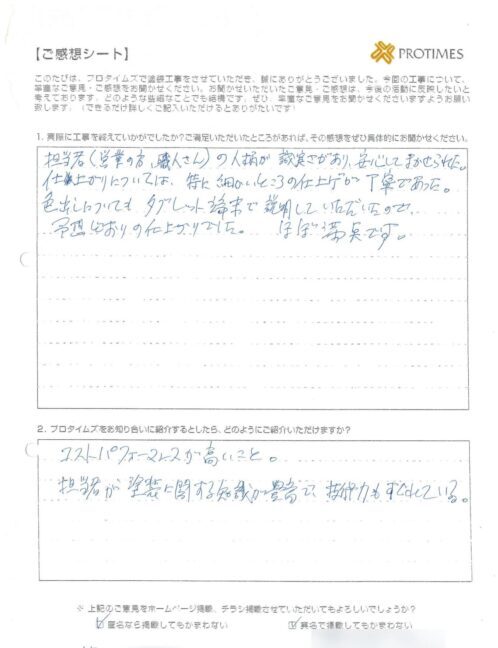 【ご感想シート】
PROTIMES
このたびは、プロタイムズで塗装工事をさせていただき、誠にありがとうございました。今回の工事について、
率直なご意見・ご感想をお聞かせください。お聞かせいただいたご意見・ご感想は、今後の活動に反映したいと
考えております。どのような些細なことでも結構です。ぜひ、率直なご意見をお聞かせくださいますようお願い
致します。（できるだけ詳しくご記入いただけるとありがたいです）
1. 実際に工事を終えていかがでしたか？ご満足いただいたところがあれば、その感想をぜひ具体的にお聞かせください。
担当者（営業の方、職人さん）の人柄が誠実さがあり、安心してまかせられた。
仕上がりについては、特に細かいところの仕上げが丁寧であった。
色出しについてもタブレット端末で説明していただいたので、
予想どおりの仕上がりでした。 ほぼ満点です。
2. プロタイムズをお知り合いに紹介するとしたら、どのようにご紹介いただけますか？
コストパフォーマンスが高いこと。
担当者が塗装に関する知識が豊富で、技術力もすぐれている。
※ 上記のご意見をホームページ掲載、チラシ掲載させていただいてもよろしいでしょうか？
匿名なら掲載してもかまわない 実名で掲載してもかまわない